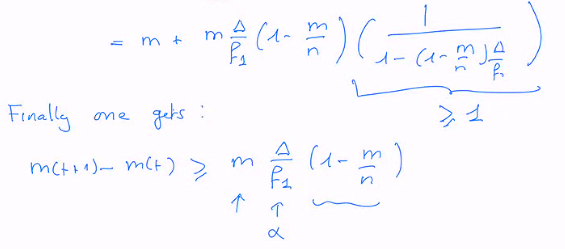 = m + m Δ/β₁ (1 - m/n) ( 1 / (1 - (1 - m/n) Δ/β₁) )
≥ 1
Finally one gets :
m(t+1) - m(t) ≥ m Δ/β₁ (1 - m/n)
↑ ↑
α